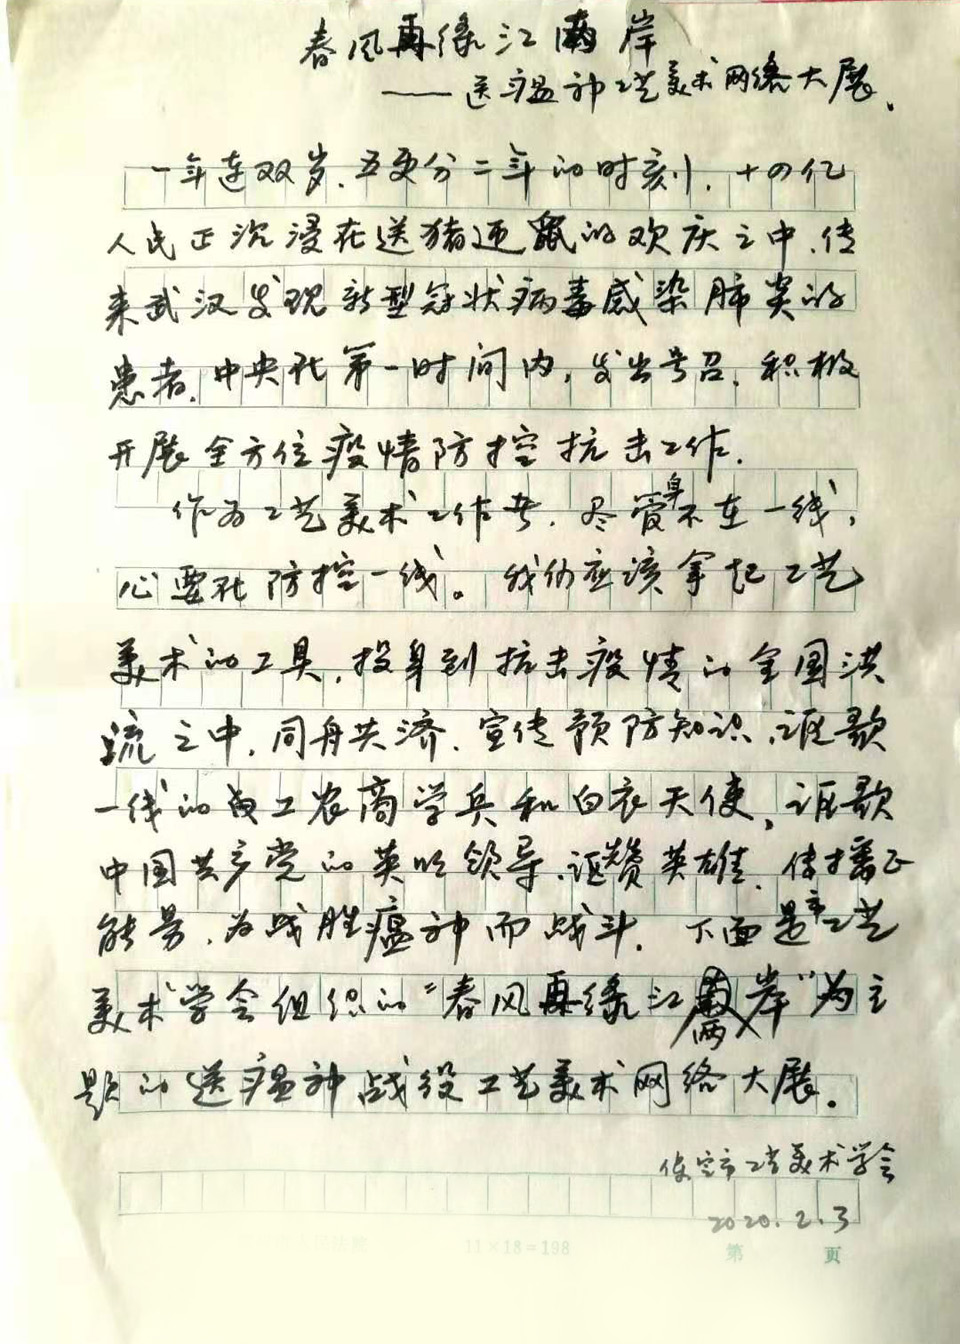 春风再绿江南岸
——送瘟神工艺美术网络大展.
一年连双岁.五更分二年的时刻.十四亿
人民正沉浸在送猪迎鼠的欢庆之中.传
来武汉发现新型冠状病毒感染肺炎的
患者.中央在第一时间内,发出号召.积极
开展全方位疫情防控抗击工作.
作为工艺美术工作者.尽管身不在一线,
心要在防控一线。我们应该拿起工艺
美术的工具,投身到抗击疫情的全国洪
流之中.同舟共济.宣传预防知识.讴歌
一线的工农商学兵和白衣天使,讴歌
中国共产党的英明领导.讴赞英雄.传播正
能量.为战胜瘟神而战斗.下面是市工艺
美术学会组织的“春风再绿江两岸”为主
题的送瘟神战役工艺美术网络大展.
保定市工艺美术学会
2020.2.3
11×18=198 第 页